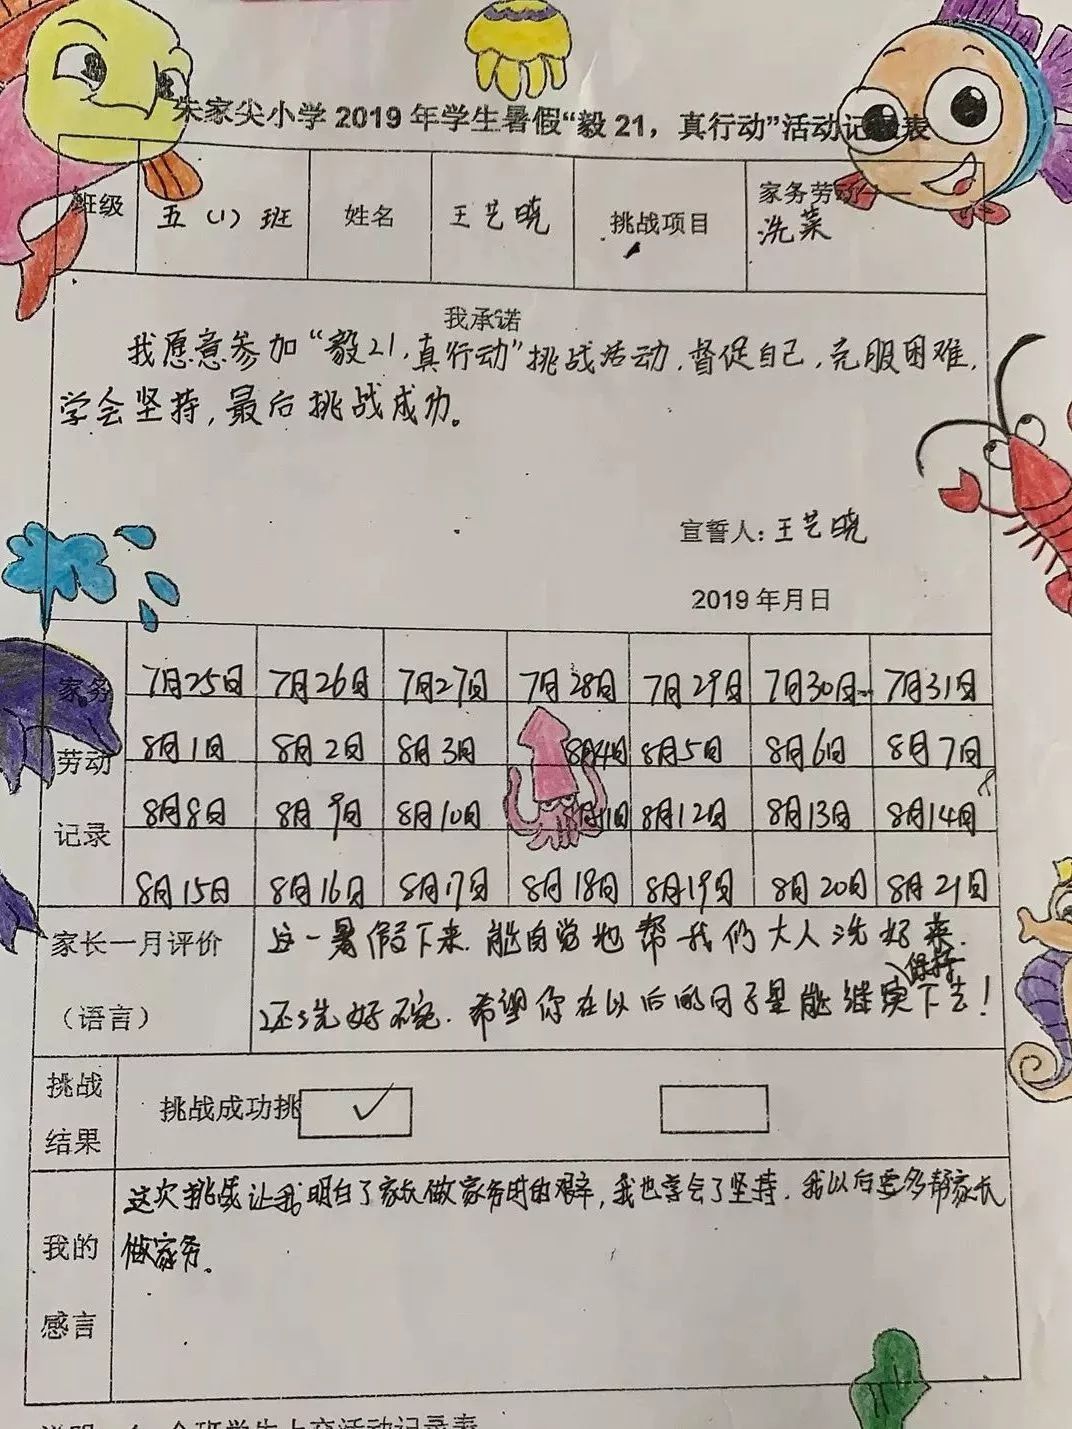 朱家尖小学2019年学生暑假“毅21，真行动”活动记录表
班级 五（1）班 姓名 王艺晓 挑战项目 家务劳动——洗菜
我承诺
我愿意参加“毅21，真行动”挑战活动，督促自己，克服困难，
学会坚持，最后挑战成功。
宣誓人：王艺晓
2019年月日
家务劳动记录
7月25日 7月26日 7月27日 7月28日 7月29日 7月30日 7月31日
8月1日 8月2日 8月3日 8月4日 8月5日 8月6日 8月7日
8月8日 8月9日 8月10日 8月11日 8月12日 8月13日 8月14日
8月15日 8月16日 8月17日 8月18日 8月19日 8月20日 8月21日
家长一月评价
（语言）
这一暑假下来，能自觉地帮我们大人洗好菜，
还洗好碗．希望你在以后的日子里能继续保持下去！
挑战结果
挑战成功挑 ✓
我的感言
这次挑战让我明白了家长做家务时的艰辛，我也学会了坚持．我以后要多帮家长
做家务。
全班学生上交活动记录表